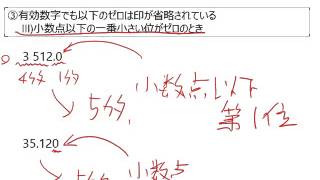 ③有効数字でも以下のゼロは印が省略されている
Ⅲ)小数点以下の一番小さい位がゼロのとき
3 512.0
4分 1分
5分
小数点以下
第1位
35.120
5分
小数点